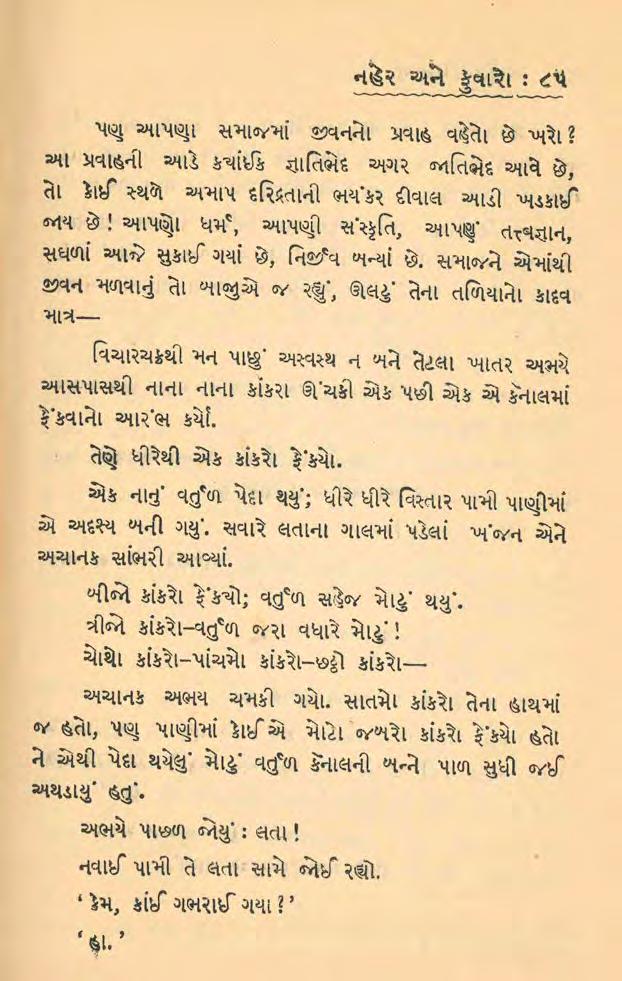 નહેર અને ફુવારો : ૮૫
પણ આપણા સમાજમાં જીવનનો પ્રવાહ વહેતો છે ખરો?
આ પ્રવાહની આડે ક્યાંઈક જ્ઞાતિભેદ અગર જાતિભેદ આવે છે,
તો કોઈ સ્થળે અમાપ દરિદ્રતાની ભયંકર દીવાલ આડી ખડકાઈ
જાય છે! આપણો ધર્મ, આપણી સંસ્કૃતિ, આપણું તત્ત્વજ્ઞાન,
સઘળાં આજે સુકાઈ ગયાં છે, નિર્જીવ બન્યાં છે. સમાજને એમાંથી
જીવન મળવાનું તો બાજુએ જ રહ્યું, ઊલટું તેના તળિયાનો કાદવ
માત્ર—
વિચારચક્રથી મન પાછું અસ્વસ્થ ન બને તેટલા ખાતર અભયે
આસપાસથી નાના નાના કાંકરા ઊંચકી એક પછી એક એ કૅનાલમાં
ફેંકવાનો આરંભ કર્યો.
તેણે ધીરેથી એક કાંકરો ફેંક્યો.
એક નાનું વર્તુળ પેદા થયું; ધીરે ધીરે વિસ્તાર પામી પાણીમાં
એ અદૃશ્ય બની ગયું. સવારે લતાના ગાલમાં પડેલાં ખંજન એને
અચાનક સાંભરી આવ્યાં.
બીજો કાંકરો ફેંક્યો; વર્તુળ સહેજ મોટું થયું.
ત્રીજો કાંકરો–વર્તુળ જરા વધારે મોટું!
ચોથો કાંકરો–પાંચમો કાંકરો–છઠ્ઠો કાંકરો—
અચાનક અભય ચમકી ગયો. સાતમો કાંકરો તેના હાથમાં
જ હતો, પણ પાણીમાં કોઈએ મોટો જબરો કાંકરો ફેંક્યો હતો
ને એથી પેદા થયેલું મોટું વર્તુળ કૅનાલની બન્ને પાળ સુધી જઈ
અથડાયું હતું.
અભયે પાછળ જોયું : લતા!
નવાઈ પામી તે લતા સામે જોઈ રહ્યો.
‘કેમ, કાંઈ ગભરાઈ ગયા?’
‘હા.’